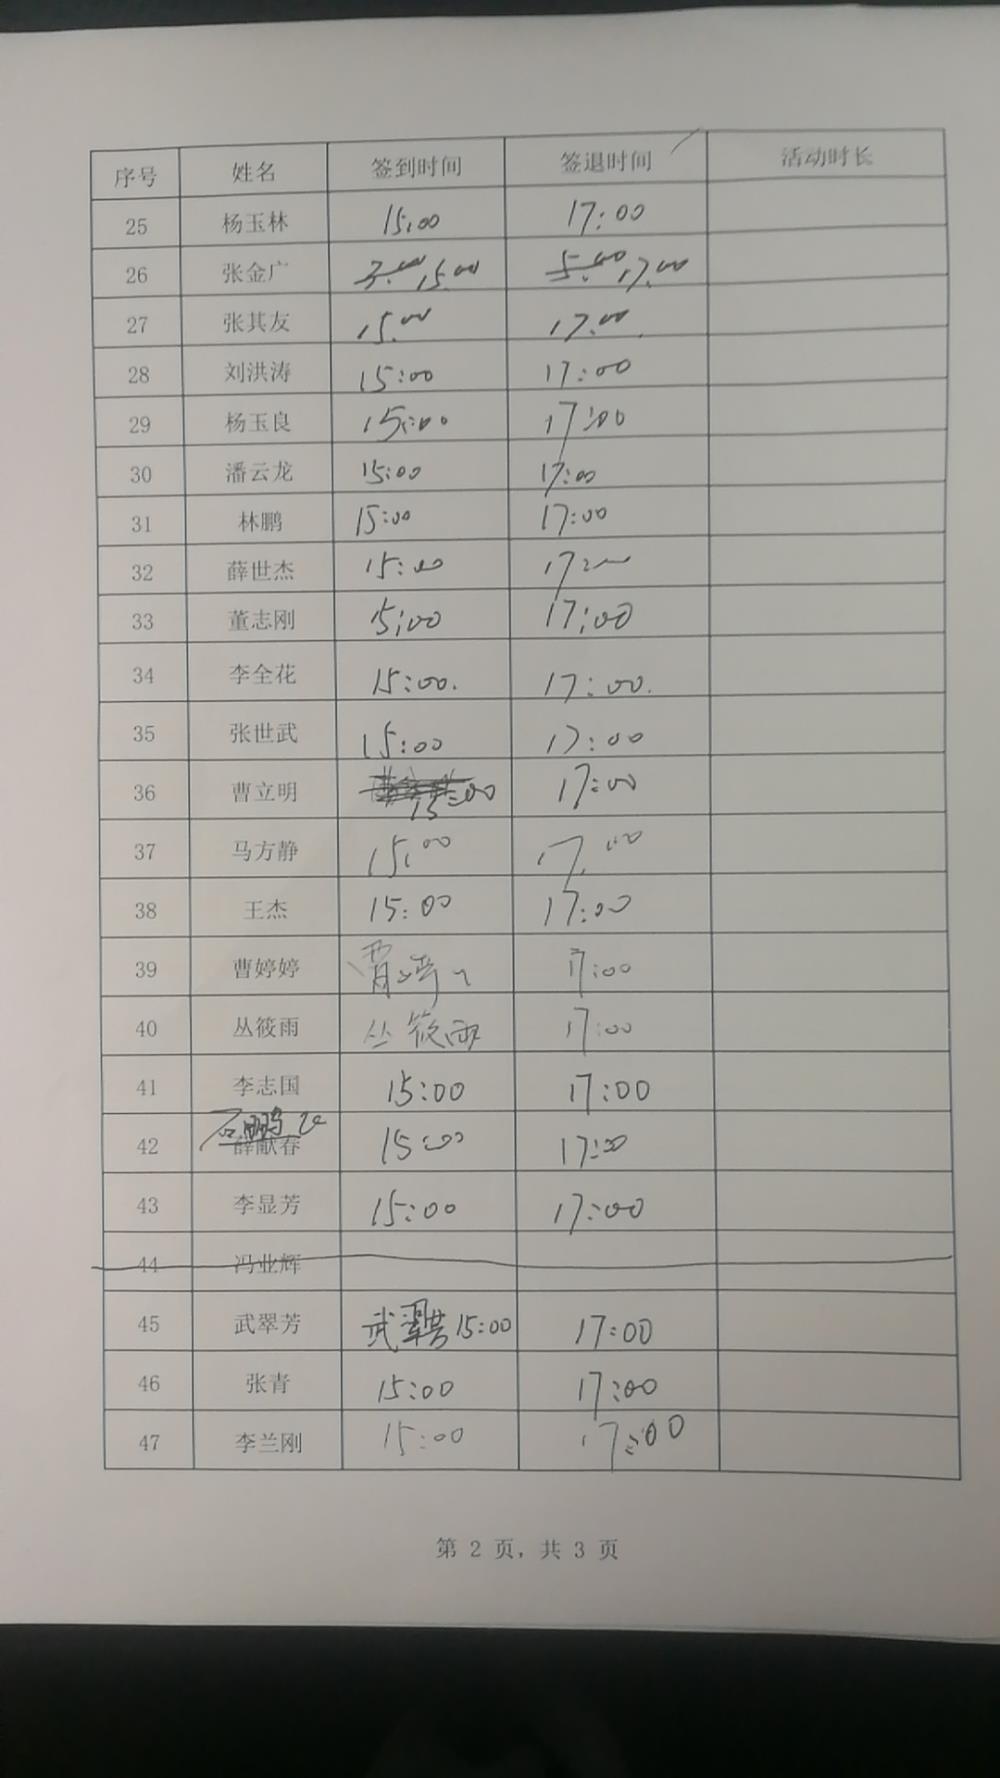 序号 姓名 签到时间 签退时间 活动时长
25 杨玉林 15:00 17:00
26 张金广 3:00 15:00 5:00 17:00
27 张其友 15:00 17:00
28 刘洪涛 15:00 17:00
29 杨玉良 15:00 17:00
30 潘云龙 15:00 17:00
31 林鹏 15:00 17:00
32 薛世杰 15:00 17:00
33 董志刚 15:00 17:00
34 李全花 15:00. 17:00.
35 张世武 15:00 17:00
36 曹立明 15:00 17:00
37 马方静 15:00 17:00
38 王杰 15:00 17:00
39 曹婷婷 17:00
40 丛筱雨 丛筱雨 17:00
41 李志国 15:00 17:00
石鹏
42 薛献春 15:00 17:00
43 李显芳 15:00 17:00
44 冯业辉
45 武翠芳 武翠芳 15:00 17:00
46 张青 15:00 17:00
47 李兰刚 15:00 17:00
第 2 页，共 3 页